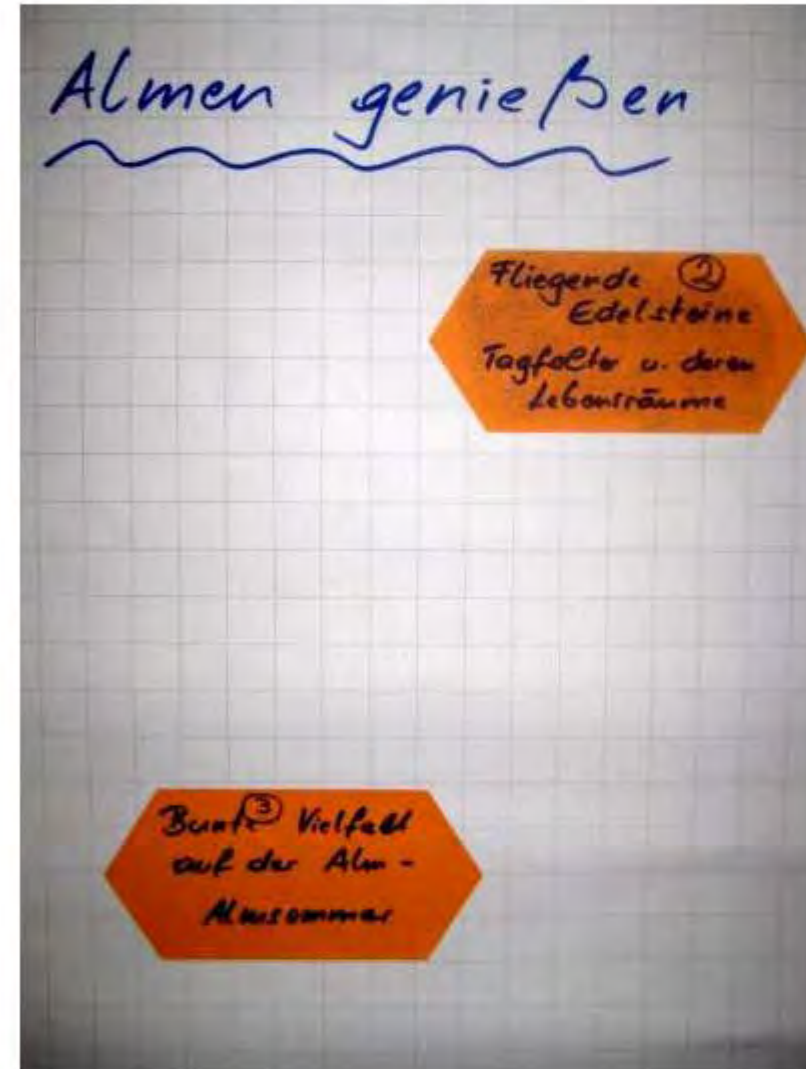 Almen genießen
Fliegende ②
Edelsteine
Tagfalter u. deren
Lebensräume
Bunte ③ Vielfalt
auf der Alm -
Almsommer